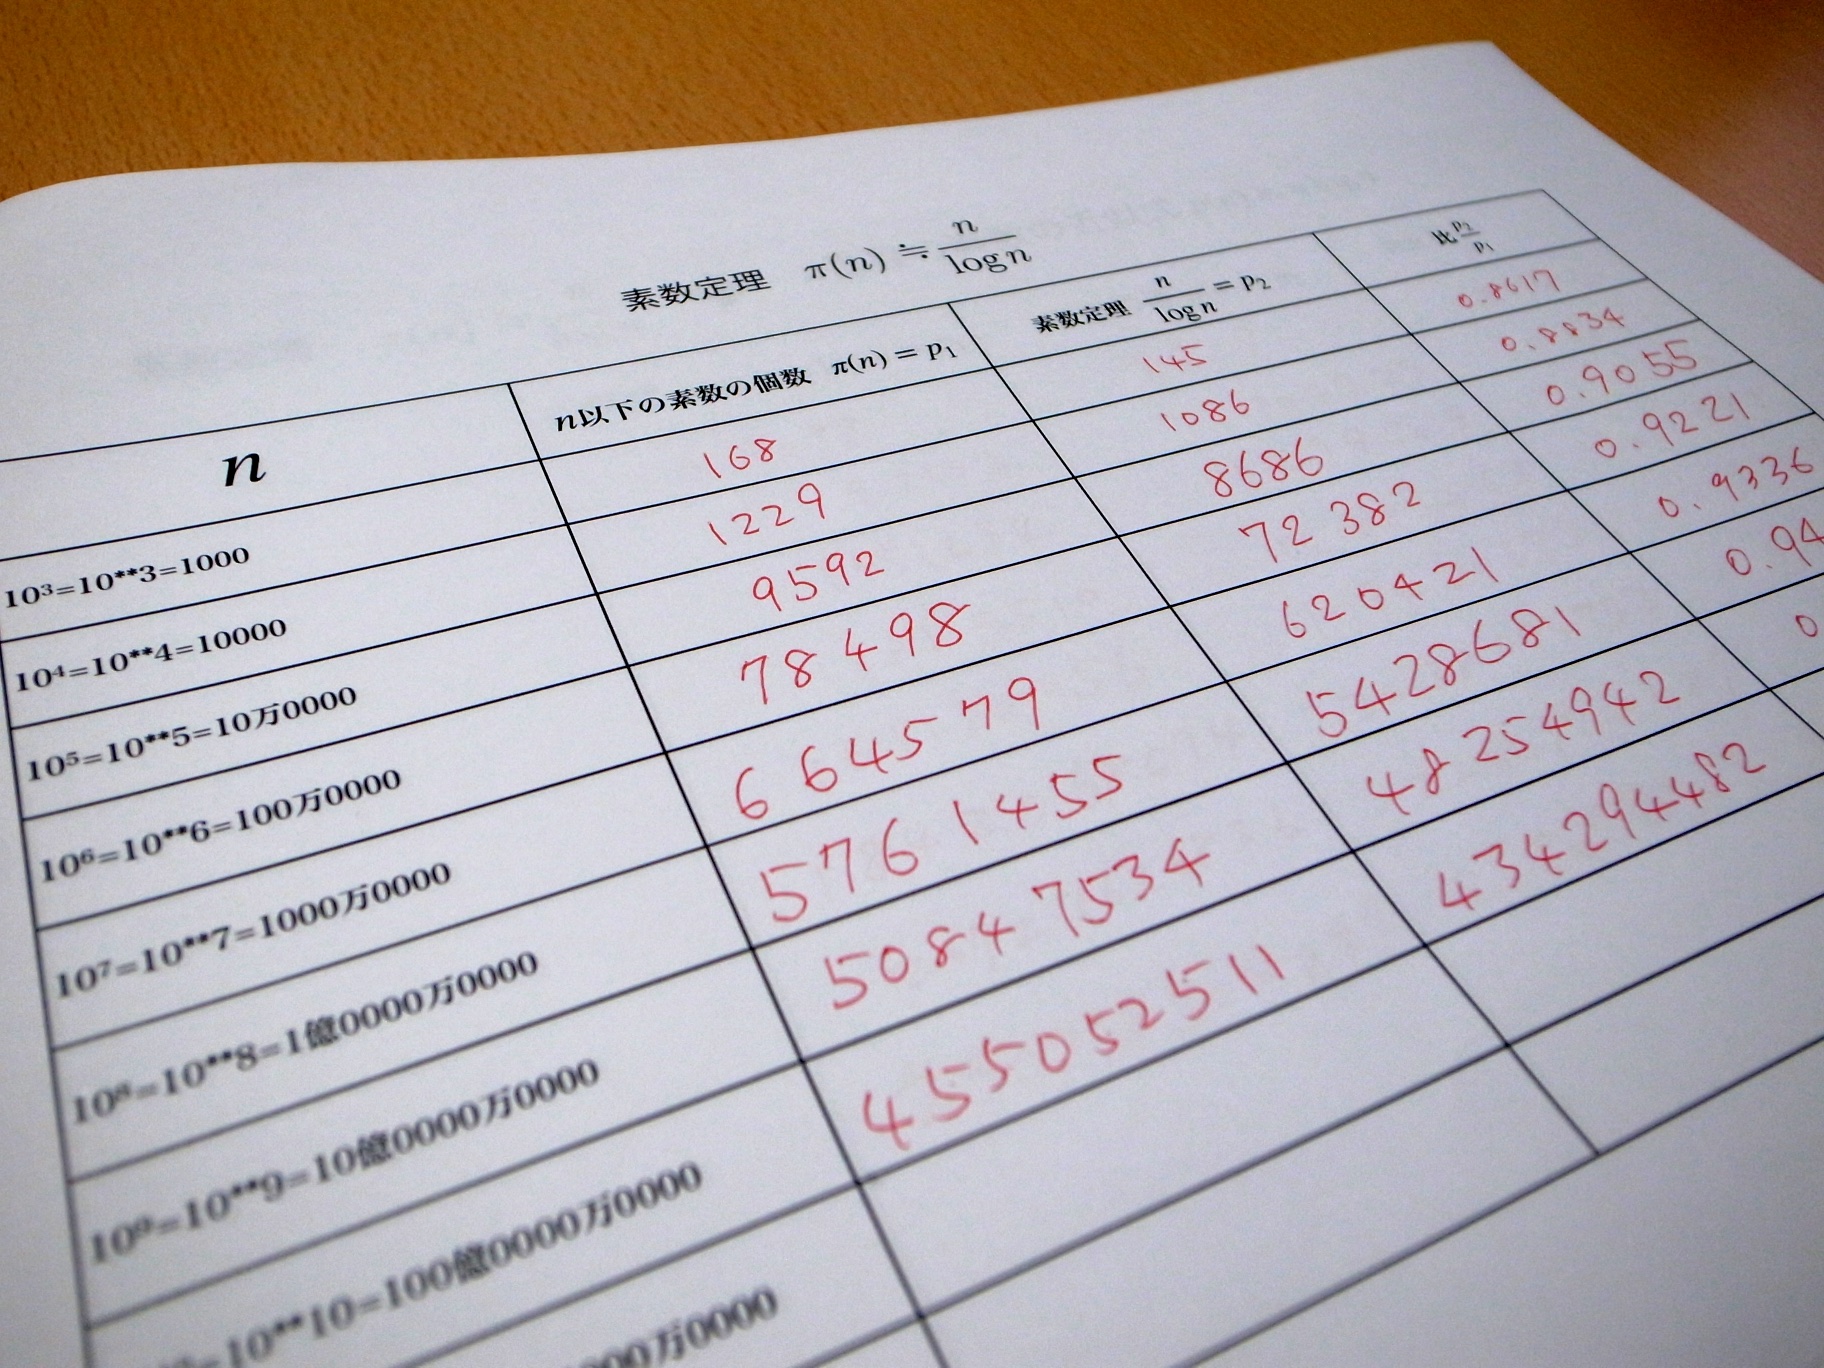 素数定理 π(n) ≒ n/log n
n n以下の素数の個数 π(n) = p₁ 素数定理 n/log n = p₂ 比 p₂/p₁
10³=10**3=1000 168 145 0.8617
10⁴=10**4=10000 1229 1086 0.8834
10⁵=10**5=10万0000 9592 8686 0.9055
10⁶=10**6=100万0000 78498 72382 0.9221
10⁷=10**7=1000万0000 664579 620421 0.9336
10⁸=10**8=1億0000万0000 5761455 5428681 0.94
10⁹=10**9=10億0000万0000 50847534 48254942 0
10**10=100億0000万0000 455052511 434294482
万0000